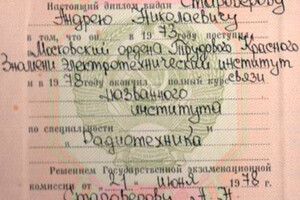 Настоящий диплом выдан Староверову
Андрею Николаевичу
в том, что он в 1973 году поступил
в Московский ордена Трудового Красного
Знамени Электротехнический институт
связи
и в 1978 году окончил полный курс
названного
института
по специальности
"Радиотехника"
Решением Государственной экзаменационной
комиссии от "21" июня 1978 г.
Староверову А. Н.